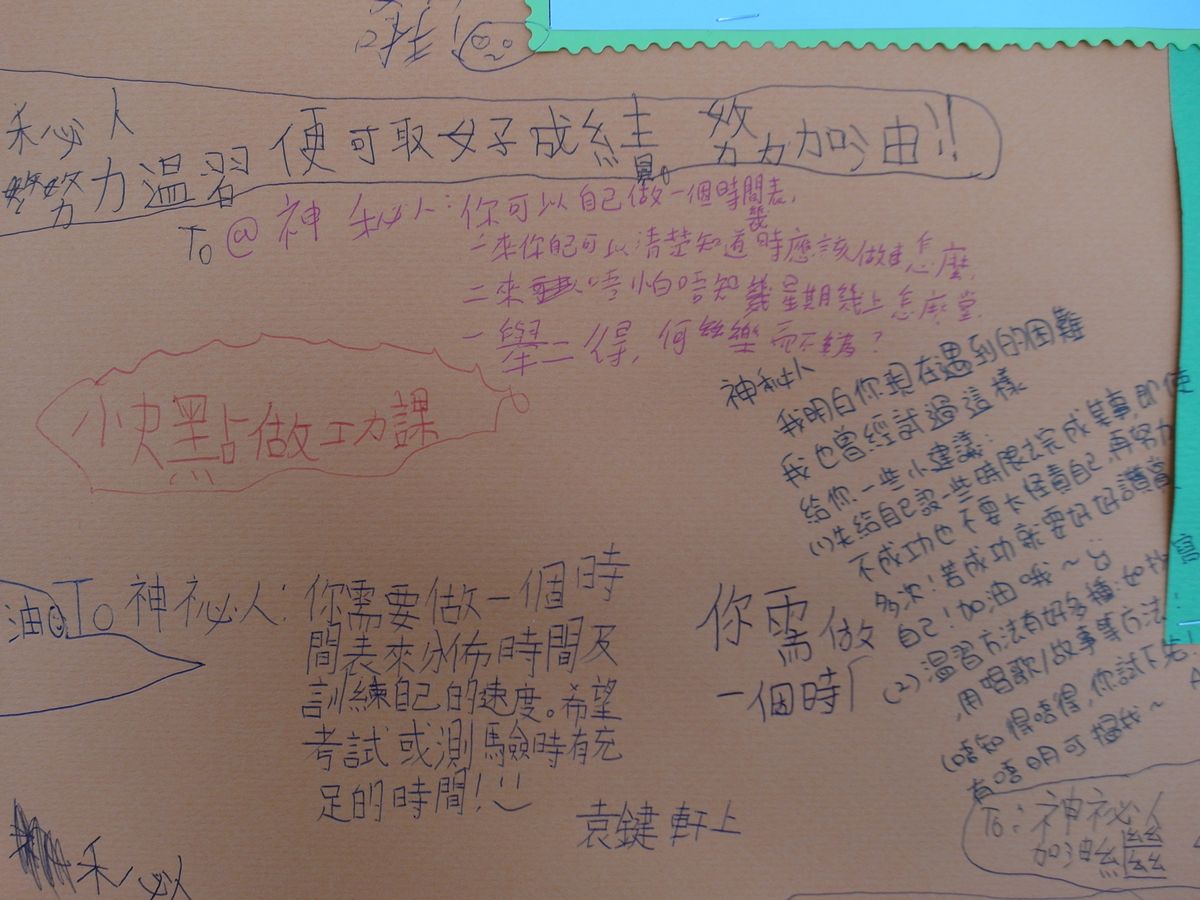 秘人
努力溫習 便可取好成績。努力加油!!
To @神秘人：你可以自己做一個時間表,
一來你自己可以清楚知道幾時應該做怎麼,
二來唔怕唔知幾星期幾上怎麼堂
一舉二得，何樂而不為？
小快點做功課
神秘人
我明白你現在遇到的困難
我也曾經試過這樣
給你一些小建議：
(1)先給自己設一些時限去完成某事，即使
不成功也不要太怪責自己，再努力
多次！若成功就要好好讚賞
自己！加油哦～
(2)溫習方法有好多種：如
用唱歌/故事等方法
(唔知得唔得，你試下先！
有唔明可搵我～
油
To 神祕人：你需要做一個時
間表來分佈時間及
訓練自己的速度。希望
考試或測驗時有充
足的時間！
袁鍵軒上
你需做
一個時
To：神祕人
加油
秘